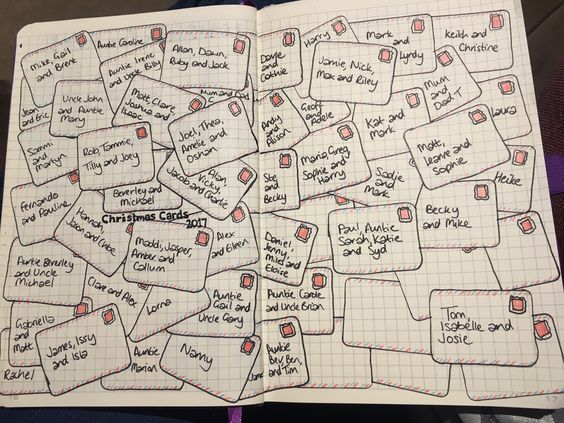 Mike, Gail
and Brent
Auntie Caroline
Auntie Irene,
and Jack
Allan, Dawn,
Ruby and Jack
Mum and Dad
C
Jean
and Eric
Uncle John
and Auntie
Mary
Matt, Claire
Joshua and
Isaac
Sammi
and
Martyn
Rob, Tammie,
Tilly and Joey
Joel, Thea,
Amelie and
Oshan
Alan,
Vicky,
Jacob and Charlie
Beverley and
Michael
Fernando
and Pauline
Hannah,
Jason and
Christmas Cards
2017
Maddi, Jasper,
Amber and
Callum
Alex
and Eileen
Auntie Beverley
and Uncle
Michael
Clare and Alex
Lorna
Auntie
Gail and
Uncle Gary
Gabriella
and
Matt
James, Issy
and Isla
Rachel
Auntie
Marion
Nanny
James
Dave
and
Cathie
Harry
Jamie, Nick,
Max and Riley
Mark
and
Keith and
Christine
Mum
and
Dad T
Andy
and
Alison
Geoff
and
Adele
Kat and
Mark
Laura
Maria, Greg,
Sophie and
Harry
Matt,
Leanne and
Sophie
Sadie
and
Mark
Heike
Ste
and
Becky
Becky
and Mike
Daniel,
Jenny,
and
Eloise
Paul, Auntie
Sarah, Katie
and Syd
Auntie Carole
and Uncle Brian
Tom,
Isabelle and
Josie
Auntie
Bev, Ben,
and Tim
17